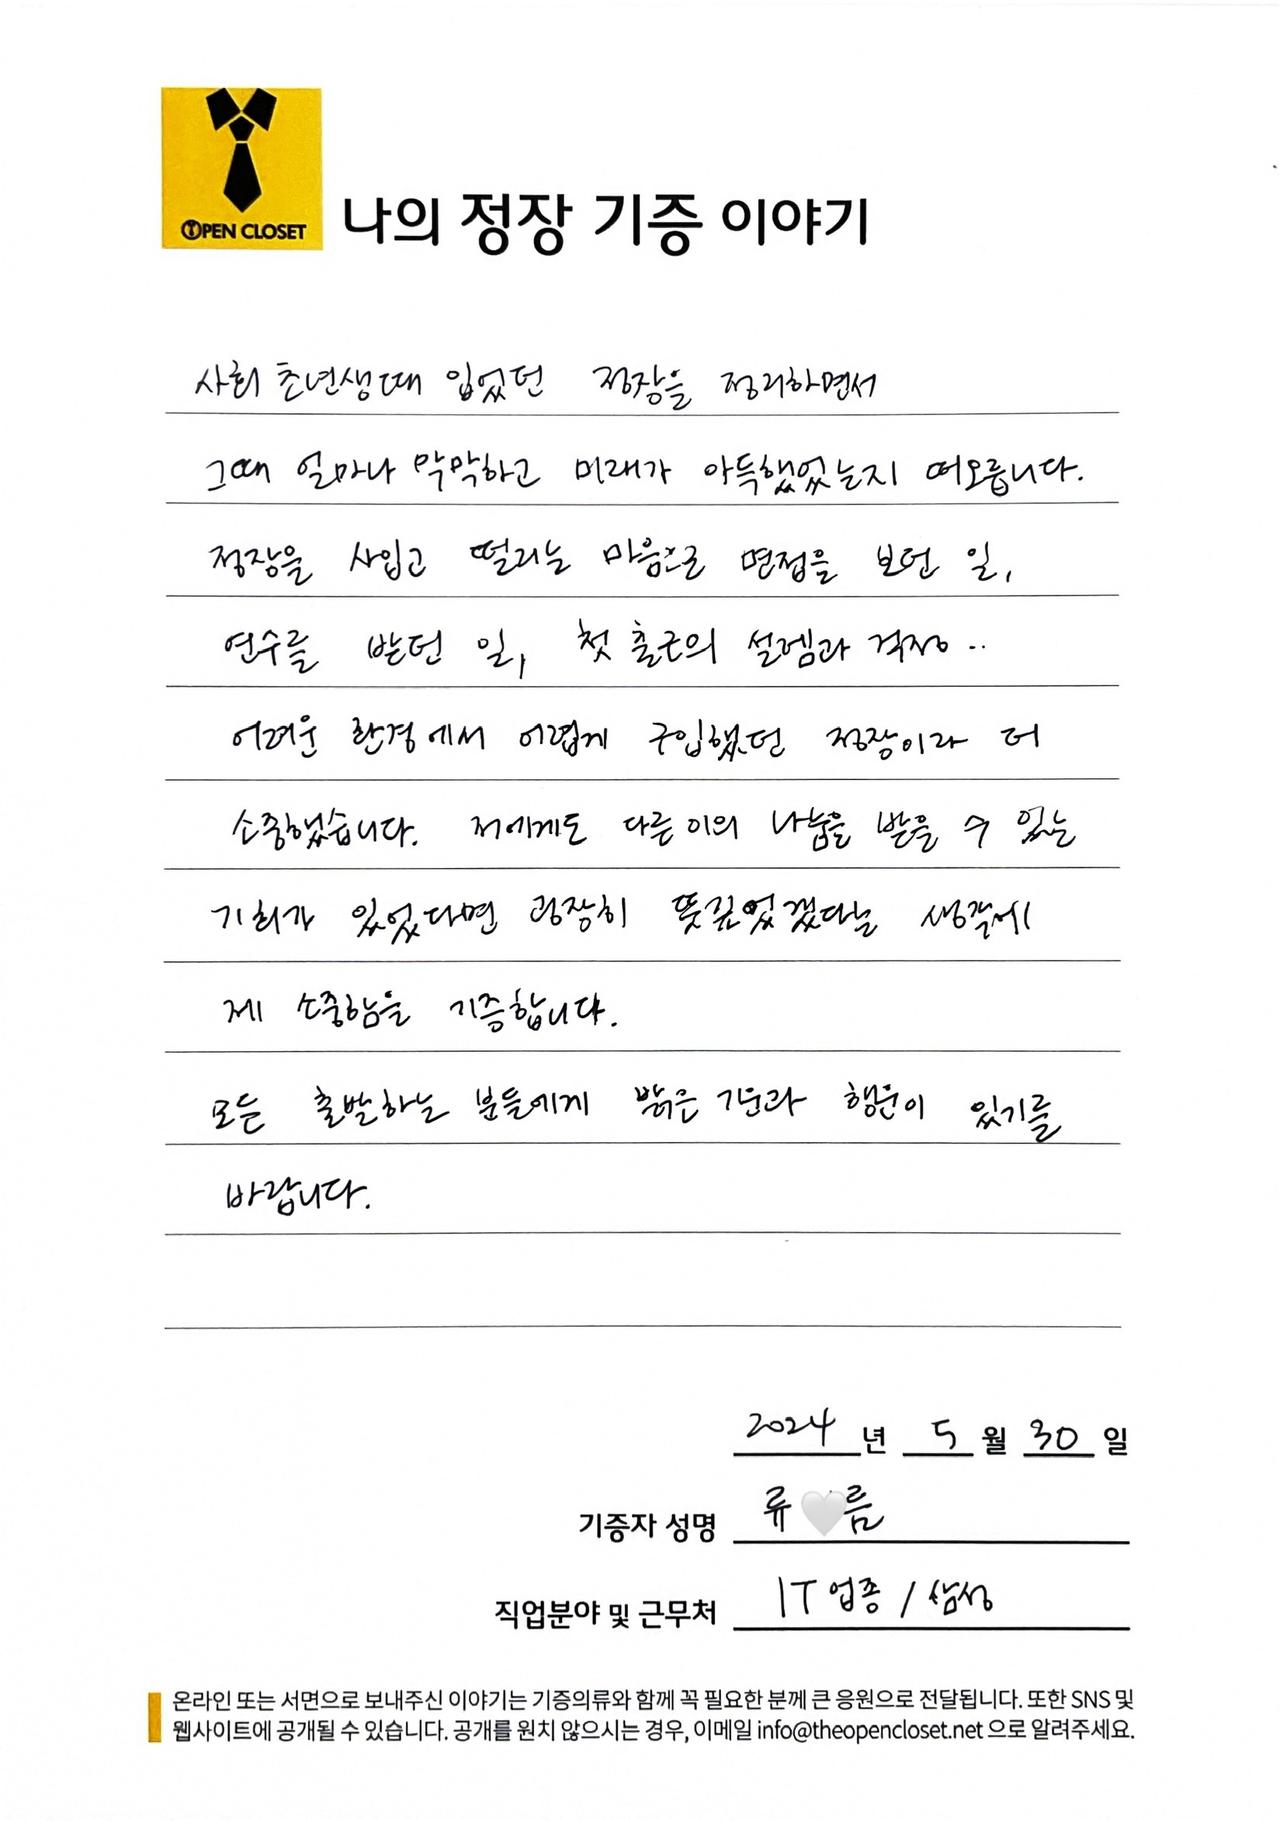 OPEN CLOSET
나의 정장 기증 이야기
사회 초년생때 입었던 정장을 정리하면서
그때 얼마나 막막하고 미래가 아득했었는지 떠오릅니다.
정장을 사입고 떨리는 마음으로 면접을 보던 일,
연수를 받던 일, 첫 출근의 설렘과 걱정..
어려운 환경에서 어렵게 구입했던 정장이라 더
소중했습니다. 저에게도 다른이의 나눔을 받을 수 있는
기회가 있었다면 굉장히 뜻깊었겠다는 생각에
제 소중함을 기증합니다.
모든 출발하는 분들에게 밝은 기운과 행운이 있기를
바랍니다.
2024 년 5 월 30 일
기증자 성명 류 름
직업분야 및 근무처 IT 업종 / 삼성
온라인 또는 서면으로 보내주신 이야기는 기증의류와 함께 꼭 필요한 분께 큰 응원으로 전달됩니다. 또한 SNS 및
웹사이트에 공개될 수 있습니다. 공개를 원치 않으시는 경우, 이메일 info@theopencloset.net 으로 알려주세요.